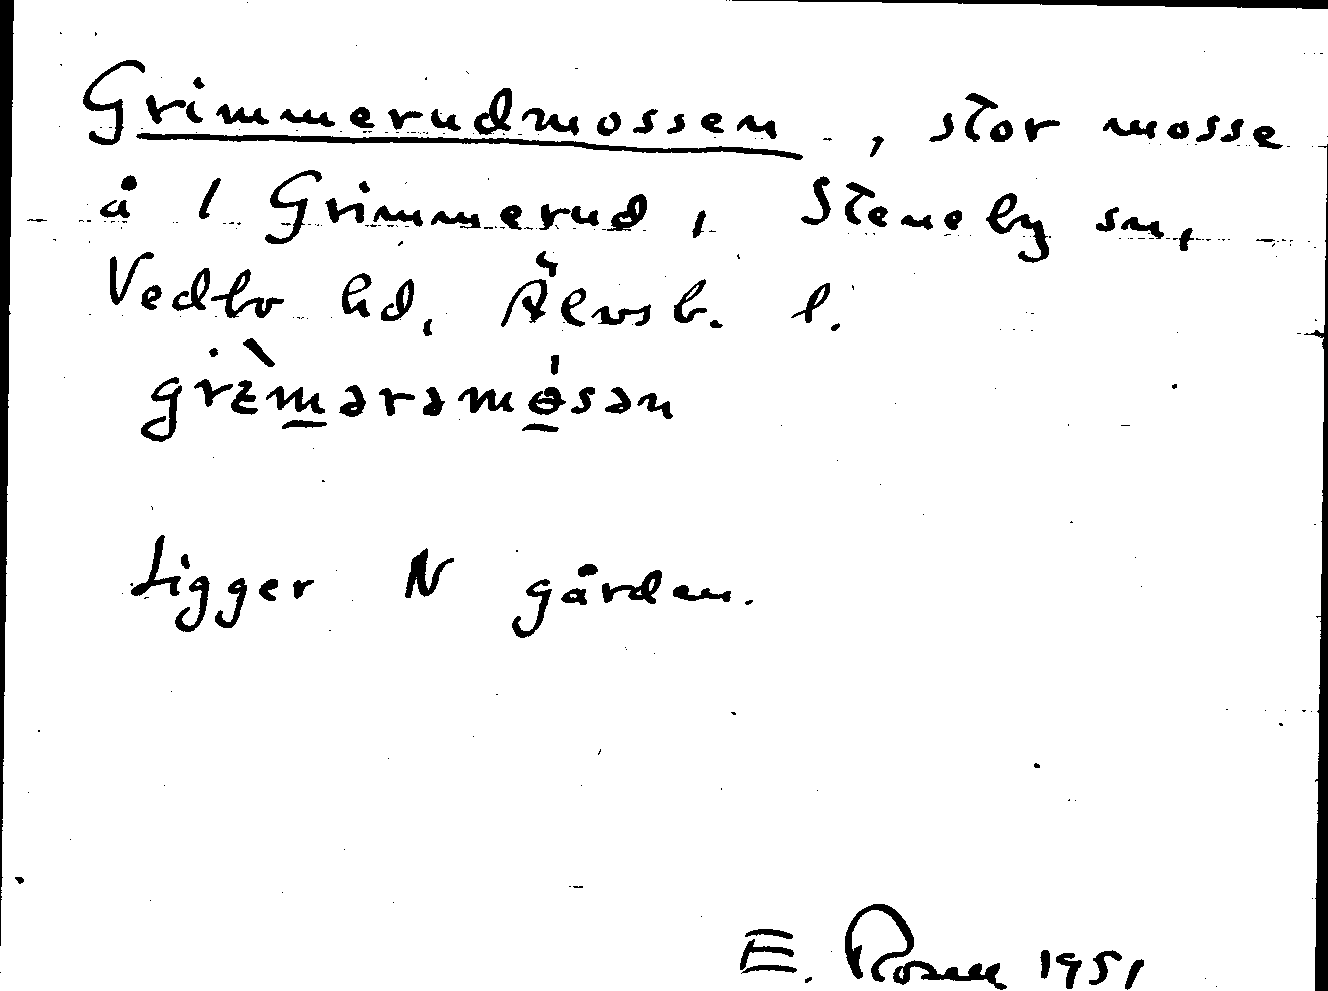 Grimmerudmossen, stor mosse
å 1 Grimmerud, Steneby sn,
Vedbo hd, Älvsb. l.
grɛ̀m̲ərəmɵ̲́sən
Ligger N gården.
E. Rosell 1951